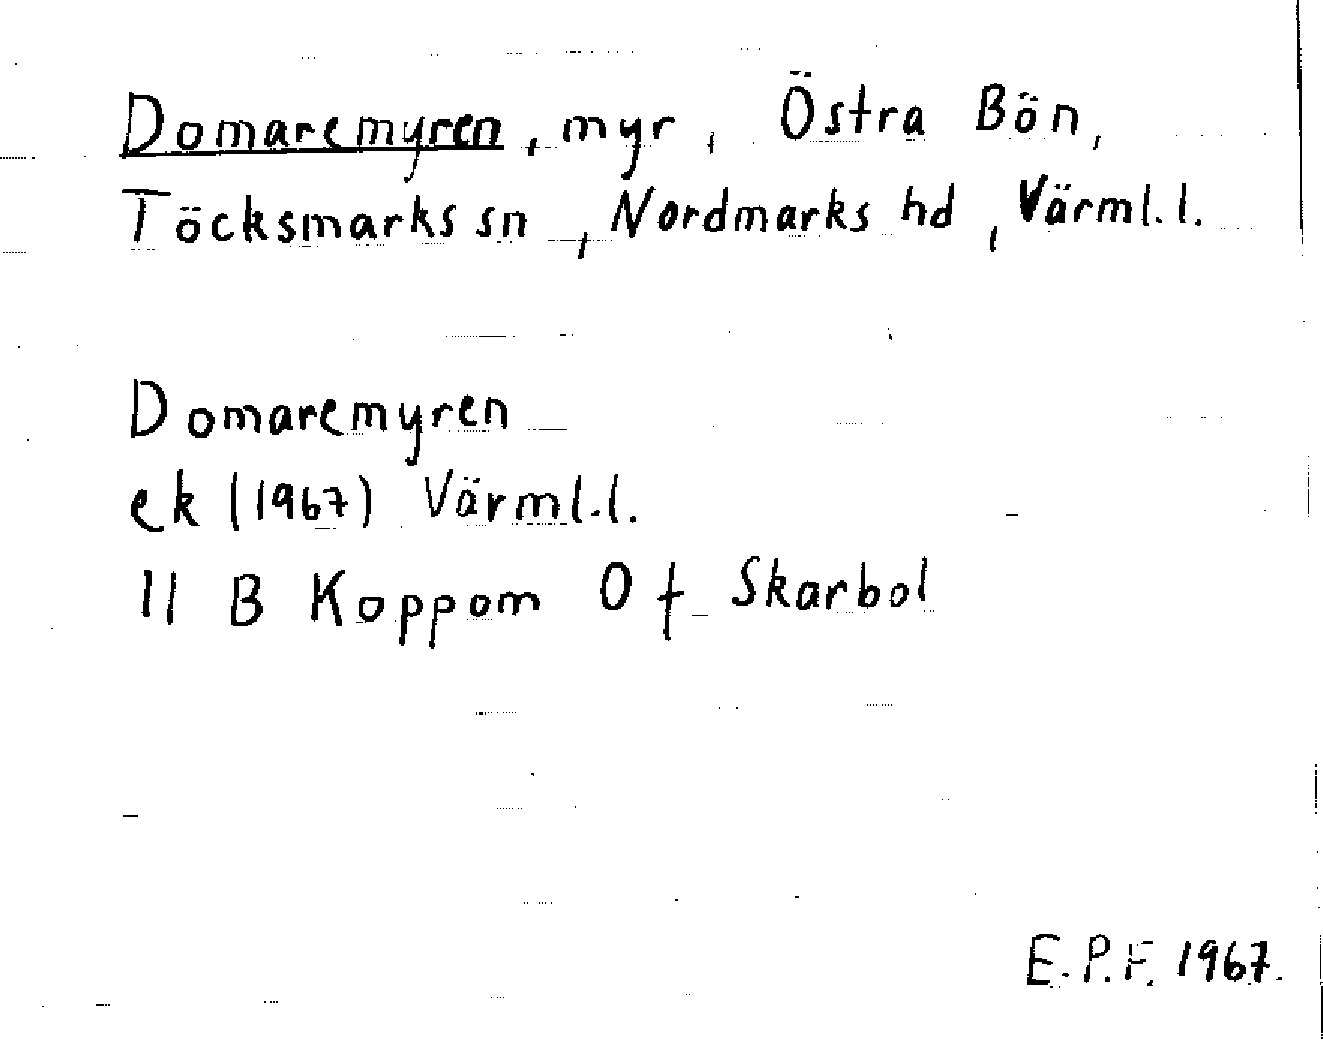 Domaremyren, myr, Östra Bön,
Töcksmarks sn, Nordmarks hd, Värml. l.
Domaremyren
ek (1967) Värml. l.
11 B Koppom 0 f Skarbol
E. P. F. 1967.